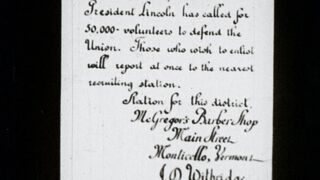 President Lincoln has called for
50,000 volunteers to defend the
Union. Those who wish to enlist
will report at once to the nearest
recruiting station.
Station for this district,
McGregor's Barber Shop
Main Street
Monticello, Vermont
J.D. Withridge